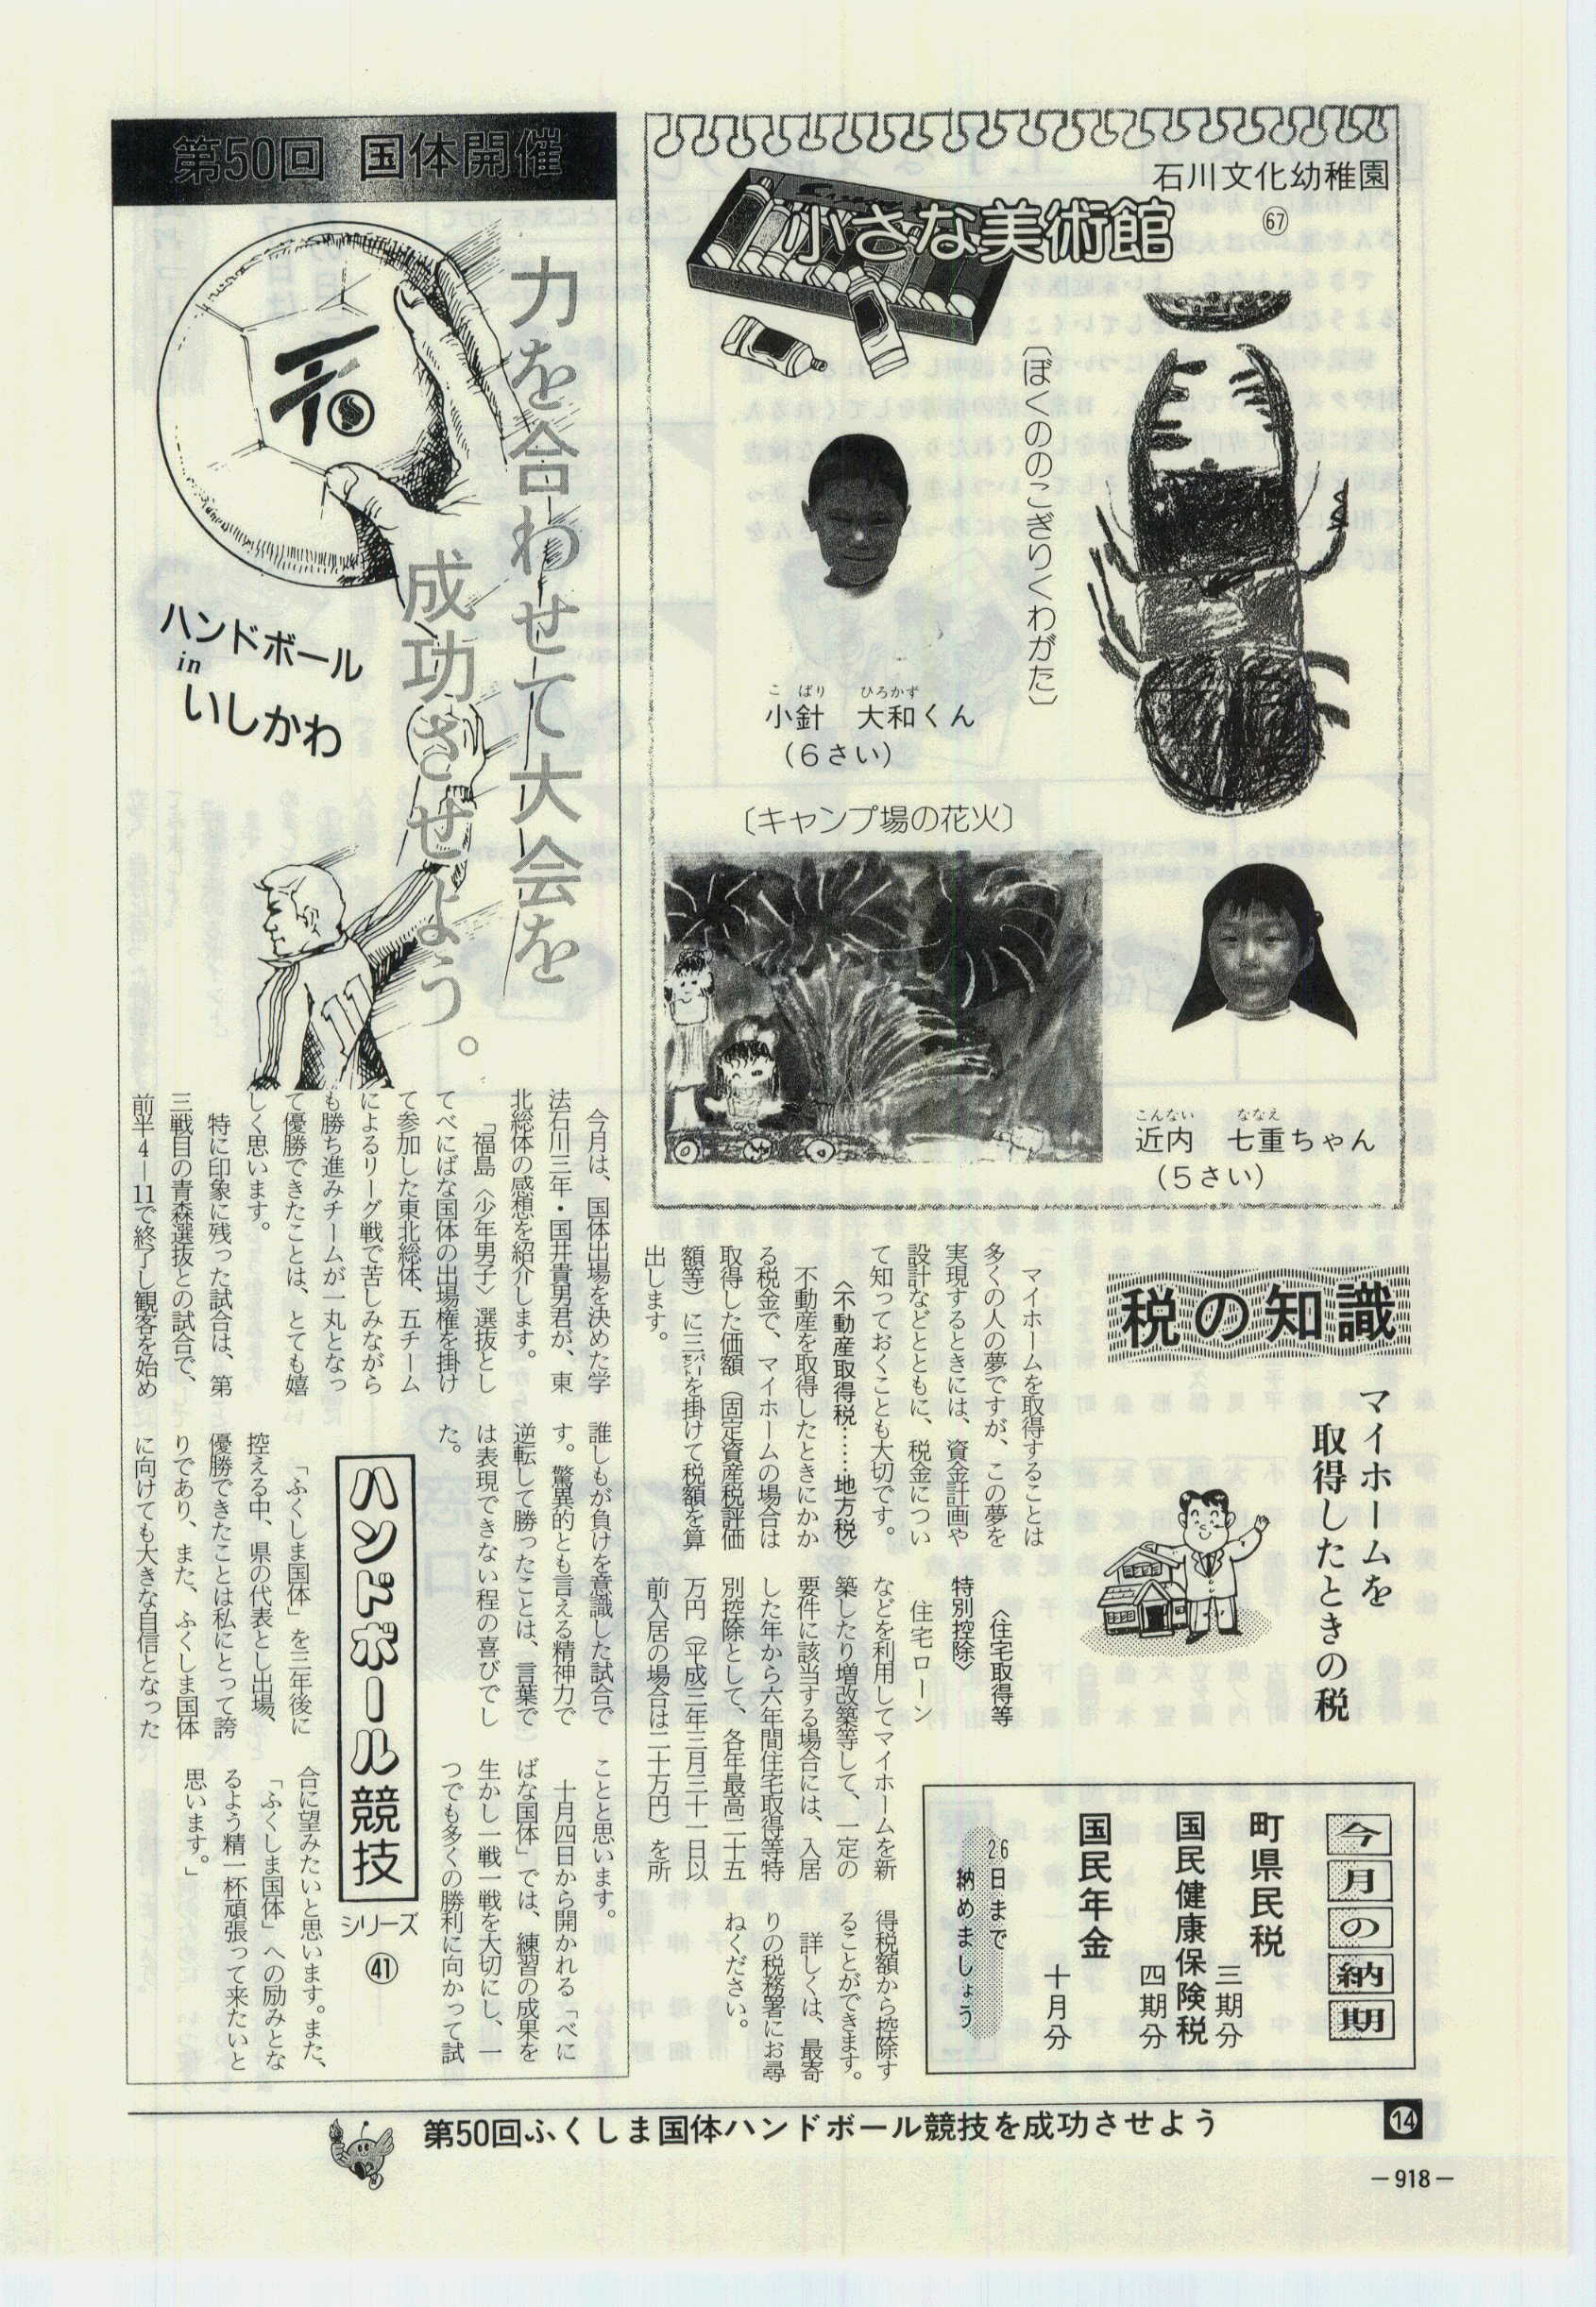 石川文化幼稚園
小さな美術館
67
〔ぼくののこぎりくわがた〕
こばり　ひろかず
小針　大和くん
(6さい)
〔キャンプ場の花火〕
こんない　ななえ
近内　七重ちゃん
(5さい)
税の知識
マイホームを
取得したときの税
マイホームを取得することは
多くの人の夢ですが、この夢を
実現するときには、資金計画や
設計などとともに、税金につい
て知っておくことも大切です。
〈不動産取得税……地方税〉
不動産を取得したときにかか
る税金で、マイホームの場合は
取得した価額（固定資産税評価
額等）に三㌫を掛けて税額を算
出します。
〈住宅取得等
特別控除〉
住宅ローン
などを利用してマイホームを新
築したり増改築等して、一定の
要件に該当する場合には、入居
した年から六年間住宅取得等特
別控除として、各年最高二十五
万円（平成三年三月三十一日以
前入居の場合は二十万円）を所
得税額から控除す
ることができます。
詳しくは、最寄
りの税務署にお尋
ねください。
今月の納期
町県民税
三期分
国民健康保険税
四期分
国民年金
十月分
26日まで
納めましょう
第50回 国体開催
力を合わせて大会を
成功させよう。
ハンドボール
in
いしかわ
11
今月は、国体出場を決めた学
法石川三年・国井貴男君が、東
北総体の感想を紹介します。
「福島〈少年男子〉選抜とし
てべにばな国体の出場権を掛け
て参加した東北総体、五チーム
によるリーグ戦で苦しみながら
も勝ち進みチームが一丸となっ
て優勝できたことは、とても嬉
しく思います。
特に印象に残った試合は、第
三戦目の青森選抜との試合で、
前半4―11で終了し観客を始め
誰しもが負けを意識した試合で
す。驚異的とも言える精神力で
逆転して勝ったことは、言葉で
は表現できない程の喜びでし
た。
ハンドボール競技
シリーズ
41
「ふくしま国体」を三年後に
控える中、県の代表とし出場、
優勝できたことは私にとって誇
りであり、また、ふくしま国体
に向けても大きな自信となった
ことと思います。
十月四日から開かれる「べに
ばな国体」では、練習の成果を
生かし一戦一戦を大切にし、一
つでも多くの勝利に向かって試
合に望みたいと思います。また、
「ふくしま国体」への励みとな
るよう精一杯頑張って来たいと
思います。」
第50回ふくしま国体ハンドボール競技を成功させよう
14
－918－